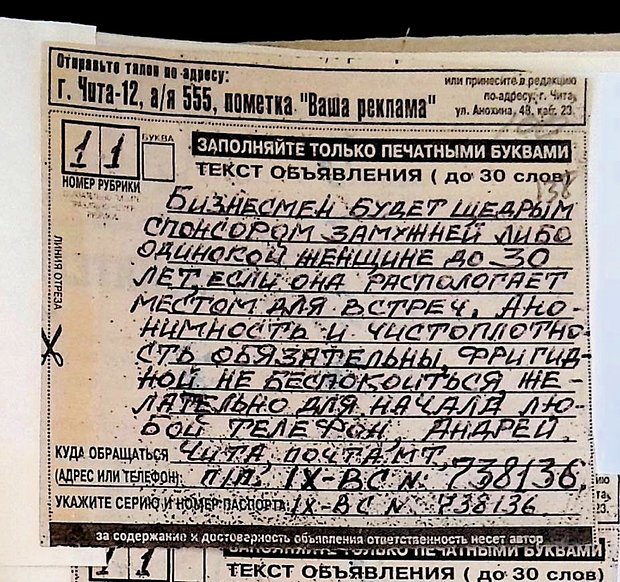 Отправьте талон по адресу:
г. Чита-12, а/я 555, пометка "Ваша реклама"
или принесите в редакцию
по адресу: г. Чита,
ул. Анохина, 48, каб. 23.
11
БУКВА
НОМЕР РУБРИКИ
ЗАПОЛНЯЙТЕ ТОЛЬКО ПЕЧАТНЫМИ БУКВАМИ
ТЕКСТ ОБЪЯВЛЕНИЯ ( до 30 слов)
138
ЛИНИЯ ОТРЕЗА
БИЗНЕСМЕН БУДЕТ ЩЕДРЫМ
СПОНСОРОМ ЗАМУЖНЕЙ ЛИБО
ОДИНОКОЙ ЖЕНЩИНЕ ДО 30
ЛЕТ, ЕСЛИ ОНА РАСПОЛОГАЕТ
МЕСТОМ ДЛЯ ВСТРЕЧ. АНО-
НИМНОСТЬ И ЧИСТОПЛОТНО-
СТЬ ОБЯЗАТЕЛЬНЫ, ФРИГИД-
НОЙ НЕ БЕСПОКОИТЬСЯ, ЖЕ-
ЛАТЕЛЬНО ДЛЯ НАЧАЛА ЛЮ-
БОЙ ТЕЛЕФОН, АНДРЕЙ.
КУДА ОБРАЩАТЬСЯ ЧИТА, ПОЧТАМТ,
(АДРЕС ИЛИ ТЕЛЕФОН) П/П, IX-ВС N. 738136.
УКАЖИТЕ СЕРИЮ И НОМЕР ПАСПОРТА IX-ВС N. 738136.
за содержание и достоверность объявления ответственность несет автор
11
ЗАПОЛНЯЙТЕ ТОЛЬКО ПЕЧАТНЫМИ БУКВАМИ
ТЕКСТ ОБЪЯВЛЕНИЯ ( до 30 слов)